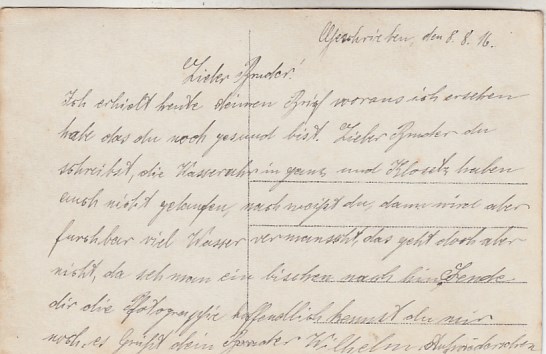 Geschrieben, den 8. 8. 16.
Lieber Bruder!
Ich erhielt heute deinen Brief woraus ich ersehen
habe das du noch gesund bist. Lieber Bruder du
schreibst, die Wasseruhr in ganz und Klosetz haben
auch nicht gelaufen, nach weißt du, dann wird aber
furchbar viel Wasser vermanscht, das geht doch aber
nicht, da seh man ein bischen nach hin Sende
dir die Photographie hoffendlich kennst du mir
noch, es Grüßt dein Bruder Wilhelm